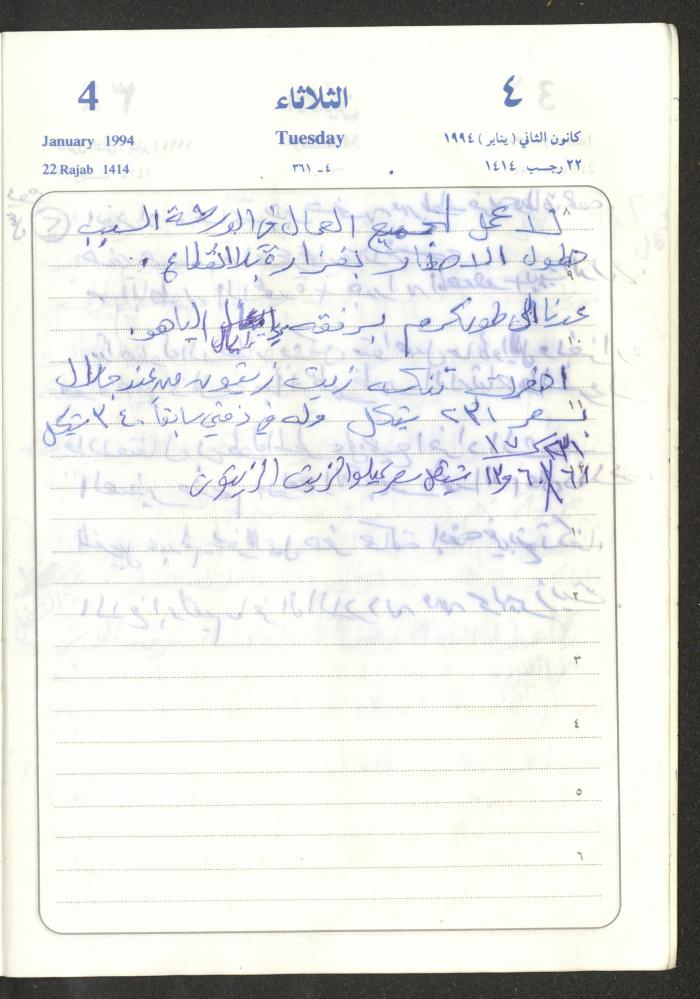 4 الثلاثاء ٤
January 1994 Tuesday كانون الثاني (يناير) ١٩٩٤
22 Rajab 1414 ٤ - ٣٦١ ٢٢ رجب ١٤١٤
٨ لا عمل لجميع العمال في الورشة السبب
هطول الامطار بغزارة بلا انقطاع.
٩
عدنا الى طولكرم برفقة الياهو.
١٠
احضرت تنكه زيت زيتون من عند جلال
١١ بسعر ٢٣١ شيكل وله في ذمتي سابقاً ٣٤٠ شيكل
٢٣١ ١٧
١٣ شيكل سعر كيلو الزيت الزيتون
١
٢
٣
٤
٥
٦